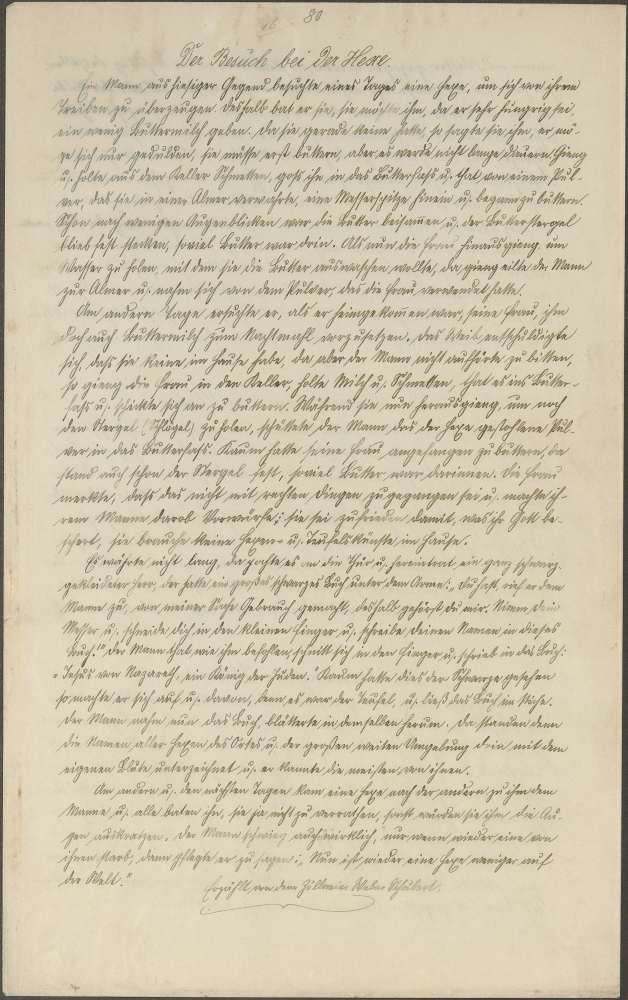 80
Der Besuch bei der Hexe.
Ein Mann aus hiesiger Gegend besuchte eines Tages eine Hexe, um sich von ihrem
Treiben zu überzeugen. Deshalb bat er sie, sie möchte ihm, da er sehr hungrig sei,
ein wenig Buttermilch geben. Da sie gerade keine hatte, so sagte sie ihm, er mö-
ge sich nur gedulden, sie müsse erst buttern, aber es werde nicht lange dauern. Gieng
u. holte aus dem Keller Schmetten, goß ihn in das Butterfaß u. that von einem Pul-
ver, das sie in einer Almer verwahrte, eine Messerspitze hinein u. begann zu buttern.
Schon nach wenigen Augenblicken war die Butter beisammen u. der Butterstergel
blieb fest stecken, soviel Butter war drin. Als nun die Frau hinausgieng, um
Wasser zu holen, mit dem sie die Butter auswaschen wollte, da gieng eilte der Mann
zur Almer u. nahm sich von dem Pulver, das die Frau verwendet hatte.
Am andern Tage ersuchte er, als er heimgekommen war, seine Frau, ihm
doch auch Buttermilch zum Nachtmahl vorzusetzen. Das Weib entschuldigte
sich, daß sie keine im Hause habe, da aber der Mann nicht aufhörte zu bitten,
so gieng die Frau in den Keller, holte Milch u. Schmetten, that es ins Butter-
faß u. schickte sich an zu buttern. Während sie nun herausgieng, um noch
den Stergel (Schlägel) zu holen, schüttete der Mann das der Hexe gestohlene Pul-
ver in das Butterfaß. Kaum hatte seine Frau angefangen zu buttern, da
stand auch schon der Stergel fest, soviel Butter war darinnen. Die Frau
merkte, daß das nicht mit rechten Dingen zugegangen sei u. machte ih-
rem Manne darob Vorwürfe; sie sei zufrieden damit, was ihr Gott be-
schert, sie brauche keine Hexen- u. Teufelskünste im Hause.
Es währte nicht lang, da pochte es an die Thür u. hereintrat ein ganz schwarz-
gekleideter Herr, der hatte ein großes schwarzes Buch unter dem Arme. „Du hast, rief er dem
Manne zu, von meiner Sache Gebrauch gemacht, deshalb gehörst du mir. Nimm dein
Messer u. schneide dich in den kleinen Finger u. schreibe deinen Namen in dieses
Buch!" Der Mann that, wie ihm befohlen, schnitt sich in den Finger u. schrieb in das Buch:
„Jesus von Nazareth, ein König der Juden." Kaum hatte dies der Schwarze gesehen
so machte er sich auf u. davon, denn es war der Teufel, u. ließ das Buch im Stiche.
Der Mann nahm nun das Buch, blätterte in demselben herum. Da standen denn
die Namen aller Hexen des Ortes u. der großen weiten Umgebung drin, mit dem
eigenen Blute unterzeichnet u. er kannte die meisten von ihnen.
Am andern u. den nächsten Tagen kam eine Hexe nach der andern zu ihm dem
Manne u. alle baten ihn, sie ja nicht zu verrathen, sonst würden sie ihm die Au-
gen auskratzen. Der Mann schwieg auch wirklich, nur wenn wieder eine von
ihnen starb, dann pflegte er zu sagen: „Nun ist wieder eine Hexe weniger auf
der Welt."
Erzählt von dem Weber Schubert.